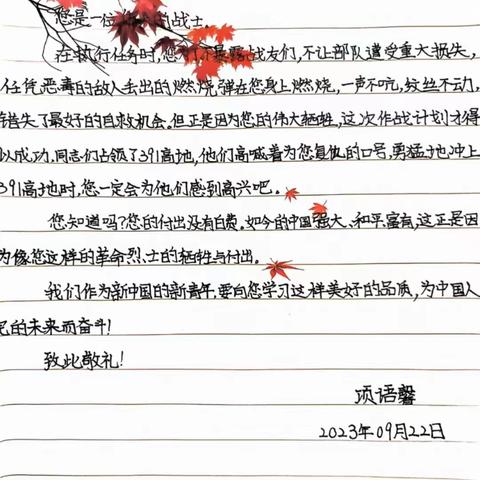 您是一位 战士.
在执行任务时,您为了不暴露战友们,不让部队遭受重大损失,
任凭恶毒的敌人丢出的燃烧弹在您身上燃烧,一声不吭,纹丝不动,
失了最好的自救机会.但正是因为您的伟大牺牲,这次作战计划才得
以成功.同志们占领了391高地,他们高喊着为您复仇的口号,勇猛地冲上
391高地时,您一定会为他们感到高兴吧.
您知道吗?您的付出没有白费.如今的中国强大、和平、富有,这正是因
为像您这样的革命烈士的牺牲与付出.
我们作为新中国的新青年.要向您学习这样美好的品质,为中国人
的未来而奋斗!
致此敬礼!
项语馨
2023年09月22日